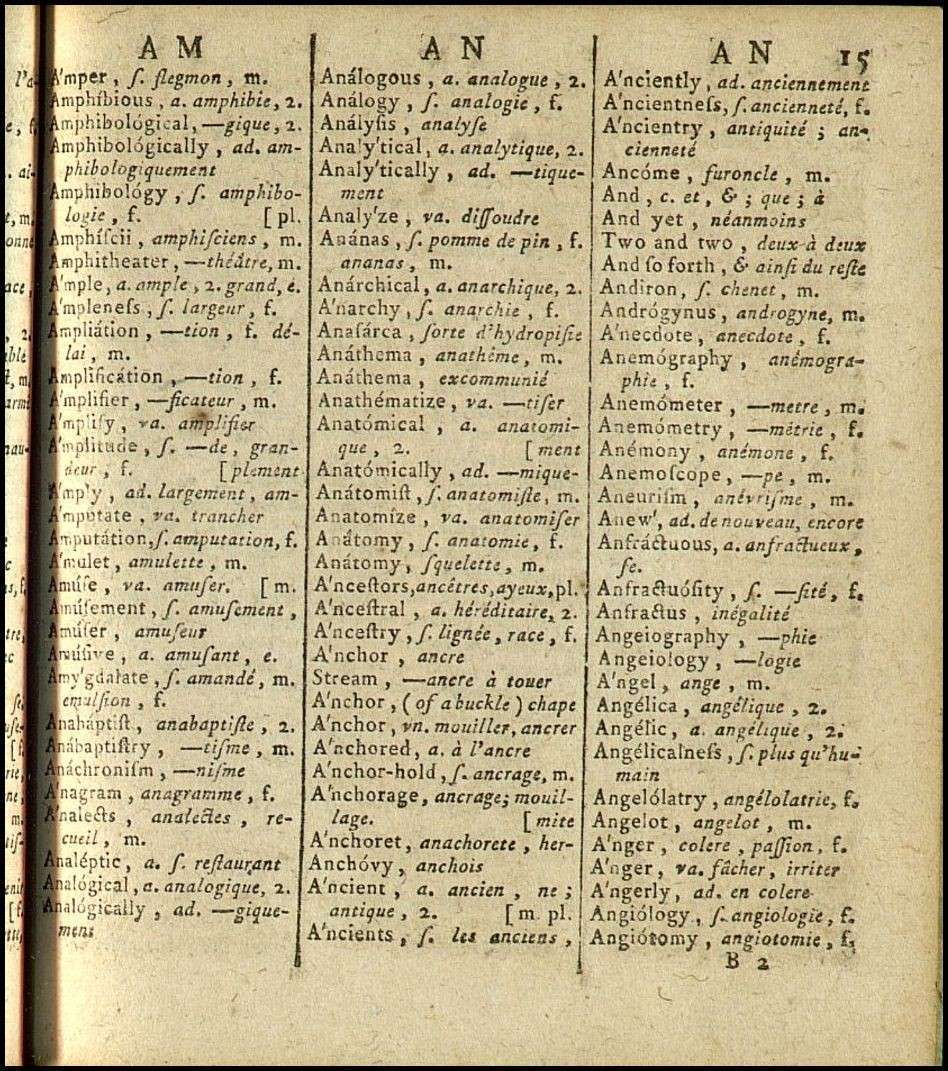 A M
A'mper, ſ. flegmon, m.
Amphíbious, a. amphibie, 2.
Amphibológical, —gique, 2.
Amphibológically, ad. am-
phibologiquement
Amphibológy, ſ. amphibo-
logie, f. [ pl.
Amphíſcii, amphiſciens, m.
Amphitheater, —théâtre, m.
A'mple, a. ample, 2. grand, e.
A'mpleneſs, ſ. largeur, f.
Ampliátion, —tion, f. dé-
lai, m.
Amplificátion, —tion, f.
A'mplifier, —ficateur, m.
A'mplify, va. amplifier
A'mplitude, ſ. —de, gran-
deur, f. [ plement
A'mply, ad. largement, am-
A'mputate, va. trancher
Amputátion, ſ. amputation, f.
A'mulet, amulette, m.
Amúſe, va. amuſer. [ m.
Amúſement, ſ. amuſement,
Amúſer, amuſeur
Amúſive, a. amuſant, e.
Amy'gdalate, ſ. amandé, m.
emulſion, f.
Anabáptiſt, anabaptiſte, 2.
Anábaptiſtry, —tiſme, m.
Anáchroniſm, —niſme
A'nagram, anagramme, f.
A'nalects, analectes, re-
cueil, m.
Analéptic, a. ſ. reſtaurant
Analógical, a. analogique, 2.
Analógically, ad. —gique-
ment
A N
Análogous, a. analogue, 2.
Análogy, ſ. analogie, f.
Anályſis, analyſe
Analy'tical, a. analytique, 2.
Analy'tically, ad. —tique-
ment
Analy'ze, va. diſſoudre
Anánas, ſ. pomme de pin, f.
ananas, m.
Anárchical, a. anarchique, 2.
A'narchy, ſ. anarchie, f.
Anaſárca, ſorte d'hydropiſie
Anáthema, anathême, m.
Anáthema, excommunié
Anathématize, va. —tiſer
Anatómical, a. anatomi-
que, 2. [ ment
Anatómically, ad. —mique-
Anátomiſt, ſ. anatomiſte, m.
Anatomíze, va. anatomiſer
Anátomy, ſ. anatomie, f.
Anátomy, ſquelette, m.
A'nceſtors, ancêtres, ayeux, pl.
A'nceſtral, a. héréditaire, 2.
A'nceſtry, ſ. lignée, race, f.
A'nchor, ancre
Stream, —ancre à touer
A'nchor, (of a buckle) chape
A'nchor, vn. mouiller, ancrer
A'nchored, a. à l'ancre
A'nchor-hold, ſ. ancrage, m.
A'nchorage, ancrage; mouil-
lage. [ mite
A'nchoret, anachorete, her-
Anchóvy, anchois
A'ncient, a. ancien, ne;
antique, 2. [ m. pl.
A'ncients, ſ. les anciens,
A N 15
A'nciently, ad. anciennement
A'ncientneſs, ſ. ancienneté, f.
A'ncientry, antiquité; an-
cienneté
Ancóme, furoncle, m.
And, c. et, &; que; à
And yet, néanmoins
Two and two, deux à deux
And ſo forth, & ainſi du reſte
Andiron, ſ. chenet, m.
Andrógynus, androgyne, m.
A'necdote, anecdote, f.
Anemógraphy, anémogra-
phie, f.
Anemómeter, —metre, m.
Anemómetry, —métrie, f.
Anémony, anémone, f.
Anemoſcope, —pe, m.
Aneuriſm, anévriſme, m.
Anew', ad. de nouveau, encore
Anfráctuous, a. anfractueux,
ſe.
Anfractuóſity, ſ. —ſité, f.
Anfractus, inégalité
Angeiography, —phie
Angeiology, —logie
A'ngel, ange, m.
Angélica, angélique, 2.
Angélic, a. angélique, 2.
Angélicalneſs, ſ. plus qu'hu-
main
Angelólatry, angélolatrie, f.
Angelot, angelot, m.
A'nger, colere, paſſion, f.
A'nger, va. fâcher, irriter
A'ngerly, ad. en colere
Angiólogy, ſ. angiologie, f.
Angiótomy, angiotomie, f.
B 2